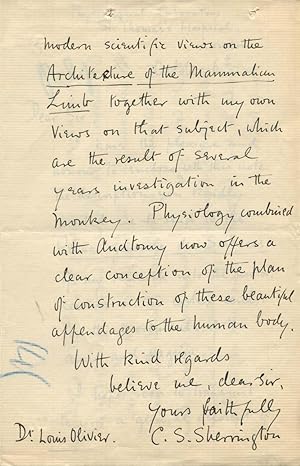 modern scientific views on the
Architecture of the Mammalian
Limb together with my own
views on that subject, which
are the result of several
years investigation in the
monkey. Physiology combined
with Anatomy now offers a
clear conception of the plan
of construction of these beautiful
appendages to the human body.
With kind regards
believe me, dear Sir,
Yours faithfully
Dr. Louis Olivier. C. S. Sherrington